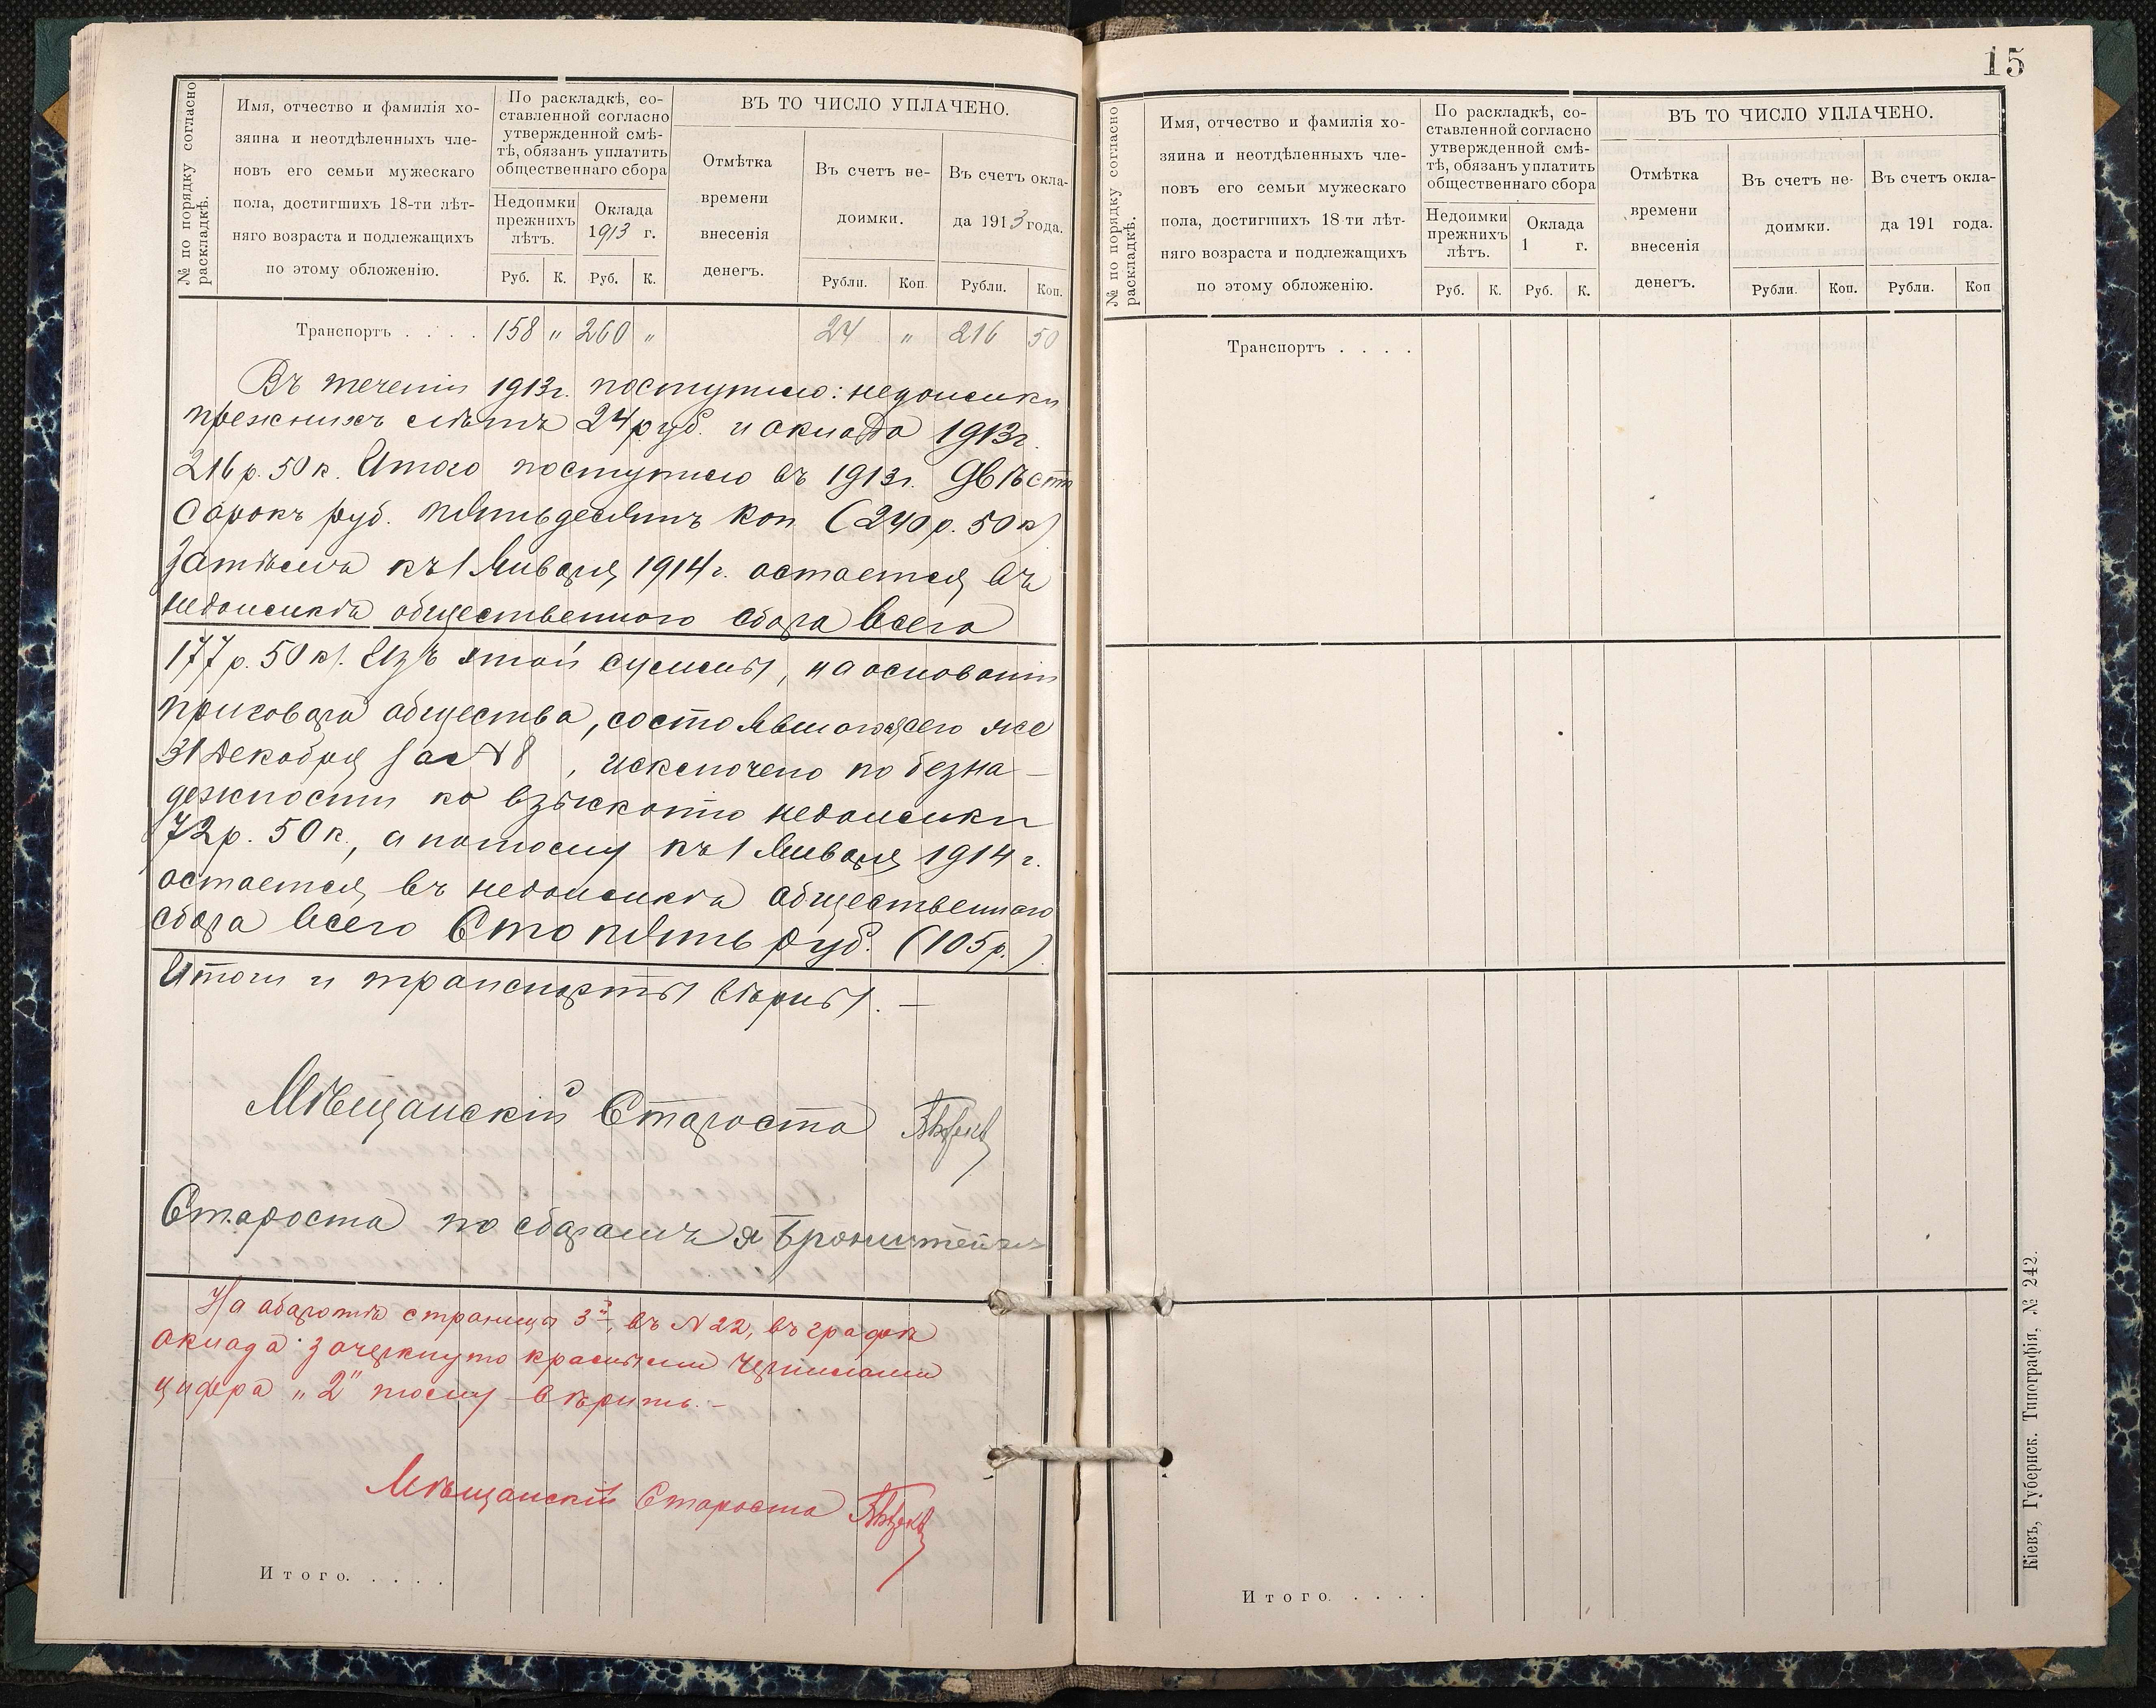 № по порядку согласно
раскладкѣ.
Имя, отчество и фамилія хо-
зяина и неотдѣленныхъ чле-
новъ его семьи мужескаго
пола, достигшихъ 18-ти лѣт-
няго возраста и подлежащихъ
по этому обложенію.
По раскладкѣ, со-
ставленной согласно
утвержденной смѣ-
тѣ, обязанъ уплатить
общественнаго сбора
Недоимки
прежнихъ
лѣтъ.
Оклада
1913 г.
Руб. К. Руб. К.
ВЪ ТО ЧИСЛО УПЛАЧЕНО.
Отмѣтка
времени
внесенія
денегъ.
Въ счетъ не-
доимки.
Въ счетъ окла-
да 1913 года.
Рубли. Коп. Рубли. Коп.
Транспортъ . . . . 158 " 260 " 24 " 216 50
Въ теченіи 1913г. поступило: недоимки
прежнихъ лѣтъ 24 руб. и оклада 1913г.
216 р. 50 к. Итого поступило въ 1913г. Двѣсти
сорокъ руб. пятьдесятъ коп (240 р. 50 к)
Затѣмъ къ 1 Января 1914 г. остается въ
недоимкѣ общественного сбора всего
177 р. 50 к. Изъ этой суммы, на основаніи
приговора общества, состоявшагося сего же
31 Декабря за № 8, исключено по безна-
дежности ко взысканію недоимки
72 р. 50 к., а потому къ 1 Января 1914 г.
остается въ недоимкѣ общественного
сбора всего Сто пять руб. (105 р.)
Итоги и транспорты вѣрны. —
Мѣщанскій Староста
Староста по сборамъ Я Бронштейнъ
На оборотѣ страницы 3й, въ № 22, въ графѣ
оклада: зачеркнуто красными чернилами
цифра „2" тому вѣрить. -
Мѣщанскій Староста
Итого. . . . .
15
№ по порядку согласно
раскладкѣ.
Имя, отчество и фамилія хо-
зяина и неотдѣленныхъ чле-
новъ его семьи мужескаго
пола, достигшихъ 18-ти лѣт-
няго возраста и подлежащихъ
по этому обложенію.
По раскладкѣ, со-
ставленной согласно
утвержденной смѣ-
тѣ, обязанъ уплатить
общественнаго сбора
Недоимки
прежнихъ
лѣтъ.
Оклада
1 г.
Руб. К. Руб. К.
ВЪ ТО ЧИСЛО УПЛАЧЕНО.
Отмѣтка
времени
внесенія
денегъ.
Въ счетъ не-
доимки.
Въ счетъ окла-
да 191 года.
Рубли. Коп. Рубли. Коп
Транспортъ . . . .
Итого. . . . .
Кіевъ, Губернск. Типографія, № 242.